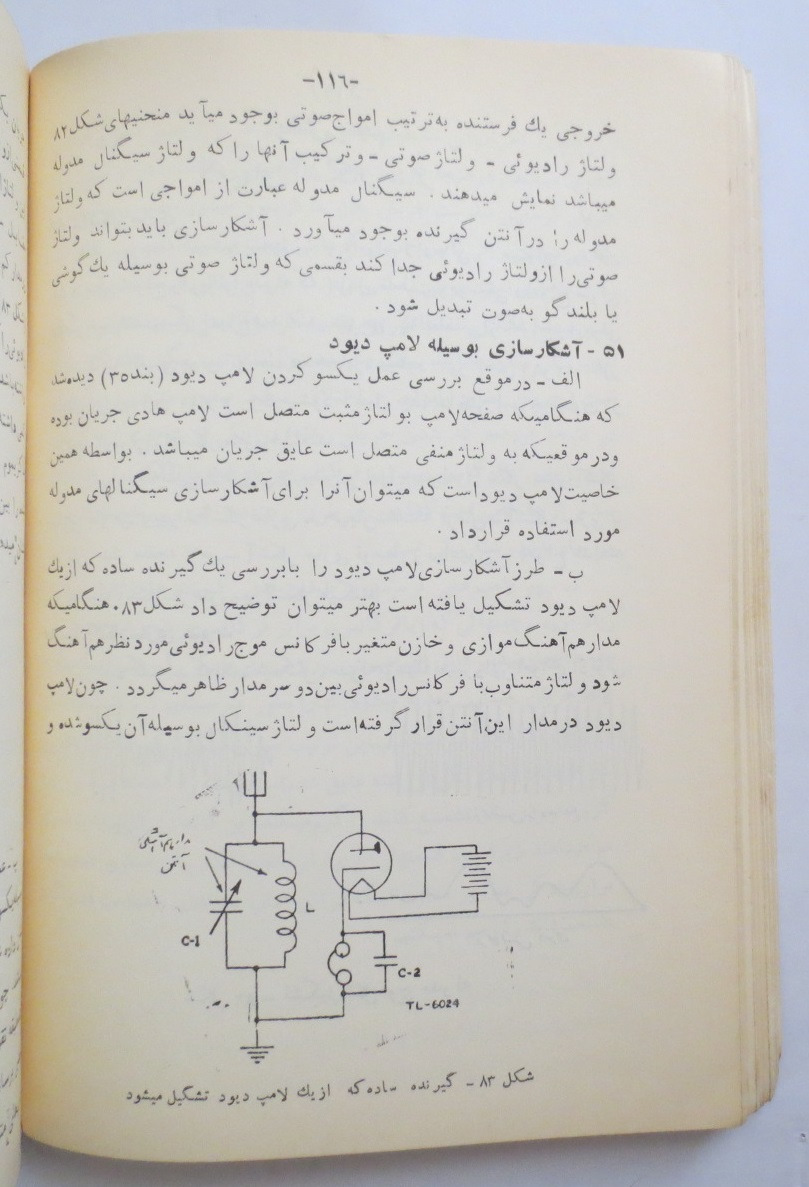 -١١٦-
خروجی یك فرستنده به‌ترتیب امواج‌صوتی بوجود میآید منحنیهای‌شكل ۸۲
ولتاژ رادیوئی - ولتاژ صوتی - وتركیب آنها را كه ولتاژ سیگنال مدوله
میباشد نمایش میدهند . سیگنال مدوله عبارت از امواجی است كه ولتاژ
مدوله را در آنتن گیرنده بوجود میآورد . آشكارسازی باید بتواند ولتاژ
صوتی را ازولتاژ رادیوئی جدا كند بقسمی كه ولتاژ صوتی بوسیله یك گوشی
یا بلندگو به‌صوت تبدیل شود .
۵۱ - آشكارسازی بوسیله لامپ دیود
الف - درموقع بررسی عمل یكسو كردن لامپ دیود (بند۳۵) دیده‌شد
كه هنگامیكه صفحه‌لامپ بولتاژ مثبت متصل است لامپ هادی جریان بوده
ودرموقعیكه به ولتاژ منفی متصل است عایق جریان میباشد . بواسطه همین
خاصیت‌لامپ دیوداست كه میتوان‌آنرا برای‌آشكارسازی سیگنالهای مدوله
مورد استفاده قرارداد .
ب - طرز آشكارسازی‌لامپ دیود را بابررسی یك گیرنده ساده كه ازیك
لامپ دیود تشكیل یافته است بهتر میتوان توضیح داد شكل ۸۳. هنگامیكه
مدارهم‌آهنگ موازی و خازن متغیر بافركانس موج رادیوئی مورد نظر هم‌آهنگ
شود ولتاژ متناوب با فركانس رادیوئی بین دوسر مدار ظاهر میگردد . چون‌لامپ
دیود درمدار این‌آنتن قرار گرفته‌است ولتاژ سینكال بوسیله‌آن یكسوشده و
آنتن
C-1
L
C-2
TL-6024
شكل ۸۳ - گیرنده ساده كه ازیك لامپ دیود تشگیل میشود